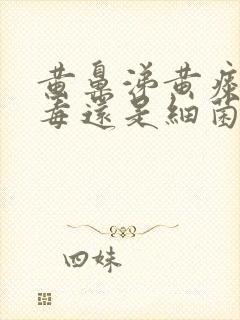 黄鼻涕黄痰
毒还是细菌
四妹